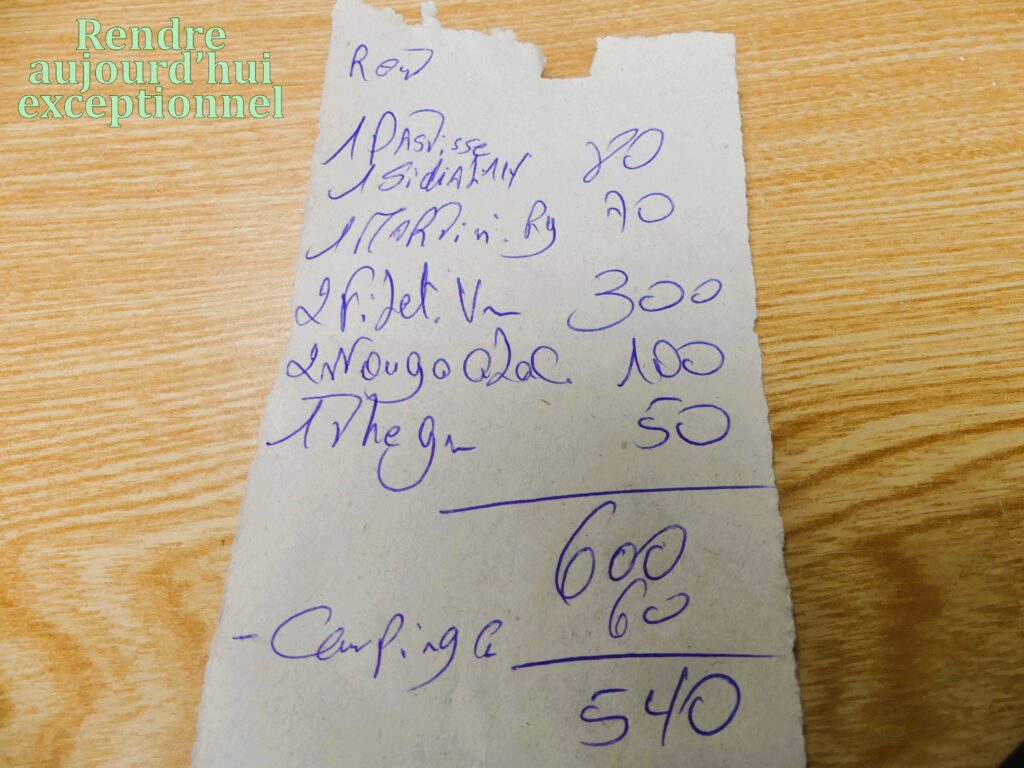 Rendre
aujourd'hui
exceptionnel
1 PAStisse 80
1 Sidi ALI
1 MARTini. Rg 70
2 Filet. Vn 300
2 Nouga Glac. 100
1 The gn 50
600
- Camping 60
540